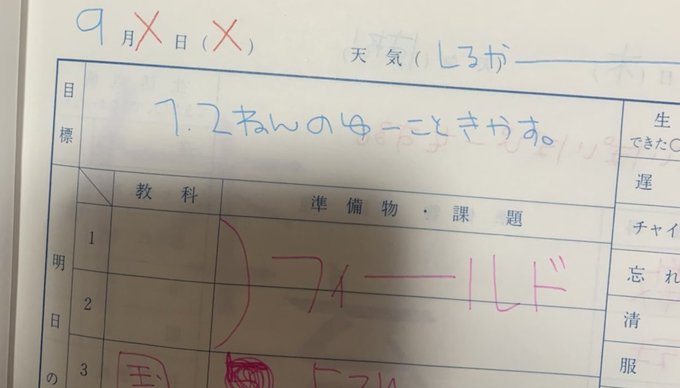 9月X日(X)
天気(しるか
目標
1.2ねんのゆーこときかす。
生
できた○
教科 準備物・課題
遅
1
チャイ
フィールド
明日の
忘れ
2
清
3
服